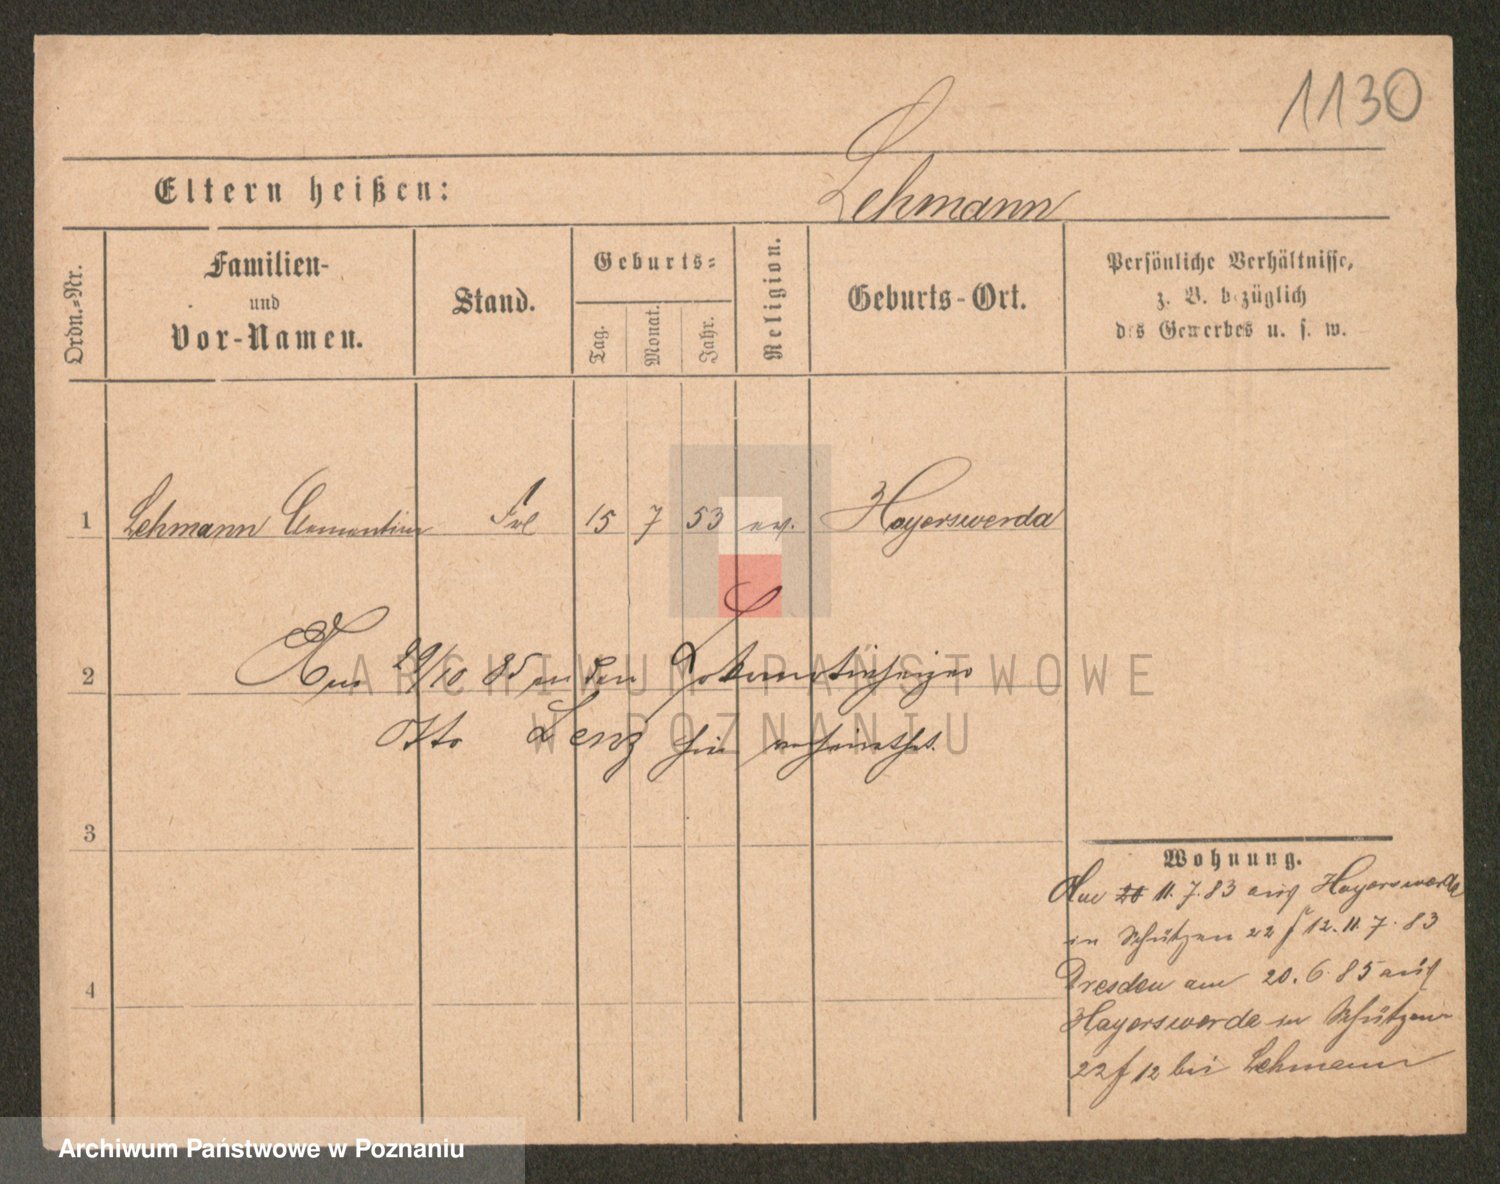 1130
Eltern heißen:
Lehmann
Ordn.-Nr.
Familien-
und
Vor-Namen.
Stand.
Geburts-
Tag.
Monat.
Jahr.
Religion.
Geburts-Ort.
Persönliche Verhältnisse,
z. B. bezüglich
des Gewerbes u. s. w.
1 Lehmann Clementine Frl 15 7 53 ev. Hoyerswerda
2 29/10 85 an den
Otto Lenz hier verheirathet.
3
Wohnung.
Am 11.7.83 aus Hoyerswerda
in Schützen 22 f 12. 11.7.83
Dresden am 20.6.85 aus
Hayerswerda in Schützen
22 f 12 bei Lehmann
4
ARCHIWUM PAŃSTWOWE
W POZNANIU
Archiwum Państwowe w Poznaniu